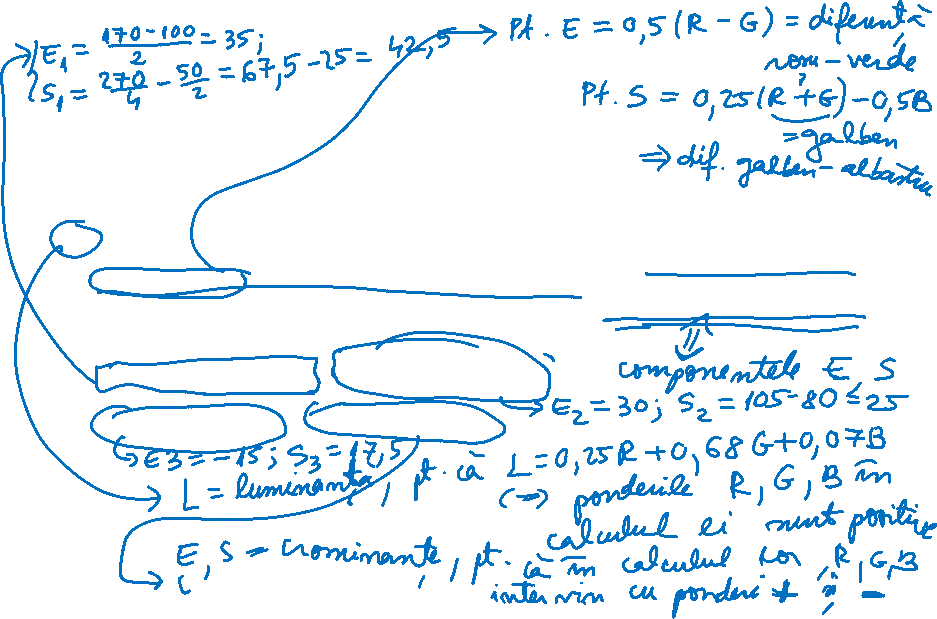 E₁ = (170-100)/2 = 35;
S₁ = 270/4 - 50/2 = 67,5 - 25 = 42,5
Pt. E = 0,5 (R - G) = diferență
roșu-verde
Pt. S = 0,25 (R + G) - 0,5B
= galben
⇒ dif. galben-albastru
componentele E, S
E₂ = 30; S₂ = 105 - 80 = 25
E3 = -15; S₃ = 17,5
L = luminanța, pt. că L = 0,25R + 0,68G + 0,07B
(⇒) ponderile R, G, B în
calculul ei sunt pozitive
E, S = crominanțe, pt. că în calculul lor, R, G, B
intervin cu ponderi + și -